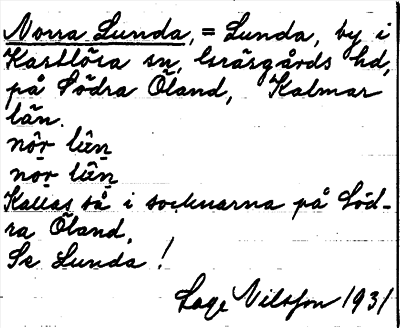 Norra Lunda, = Lunda, by i
Karlslösa sn, Gräsgårds hd,
på Södra Öland, Kalmar
län.
nôr lûn
nor lûn
Kallas så i socknarna på Söd-
ra Öland.
Se Lunda!
Lage Nilsson 1931